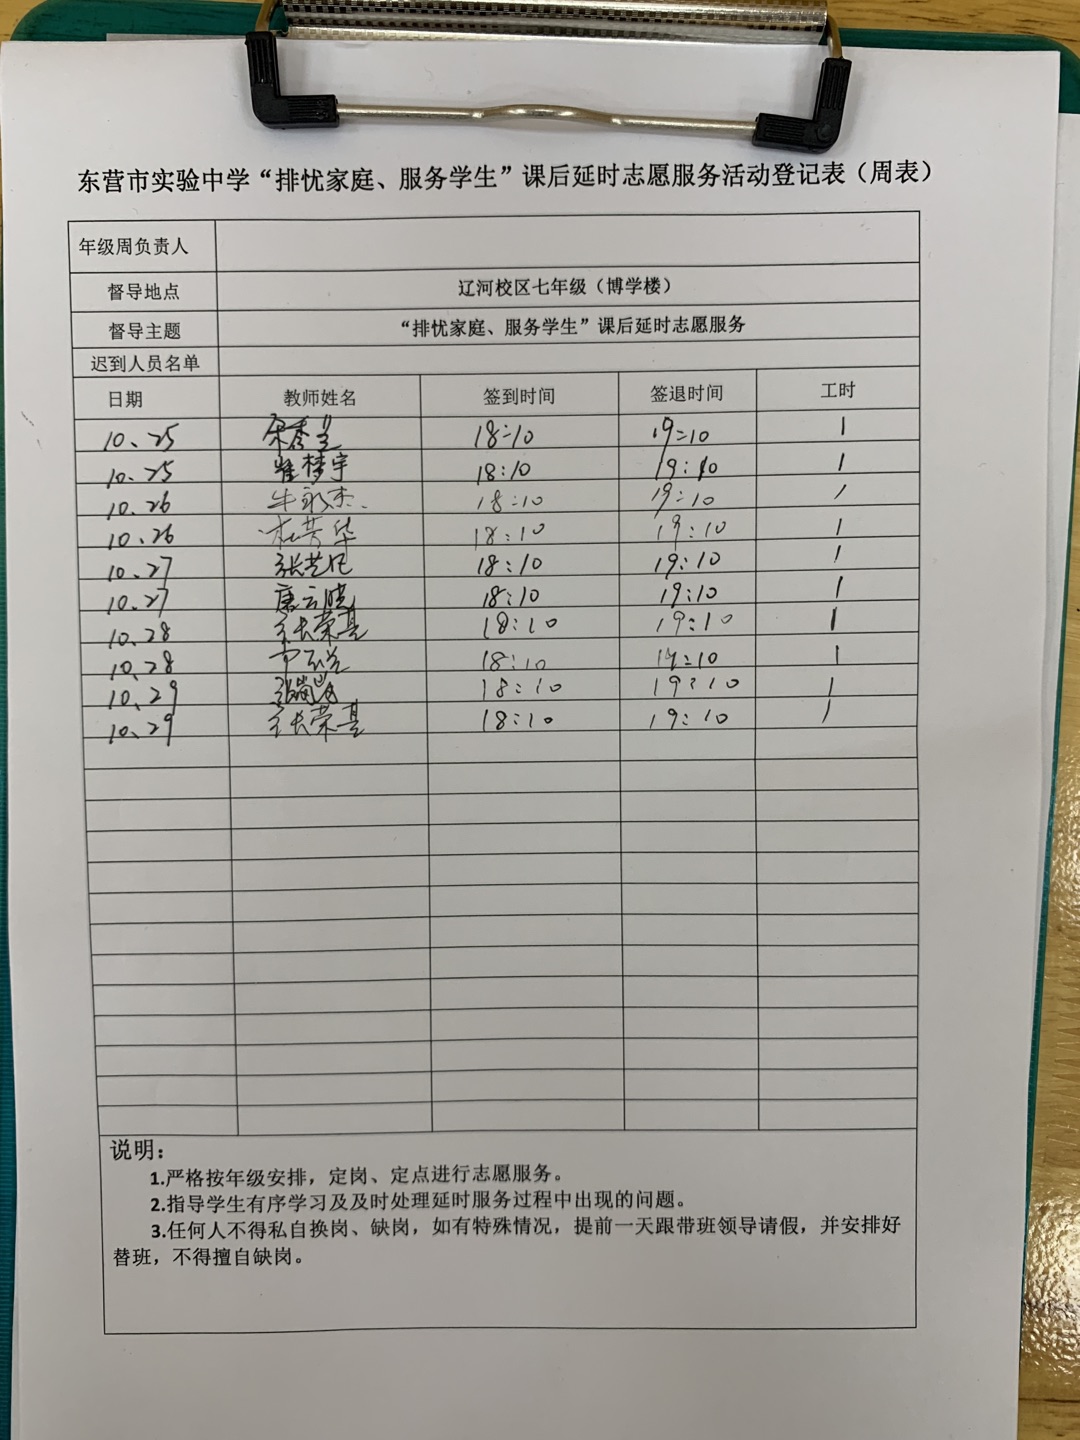 东营市实验中学“排忧家庭、服务学生”课后延时志愿服务活动登记表（周表）
年级周负责人
督导地点 辽河校区七年级（博学楼）
督导主题 “排忧家庭、服务学生”课后延时志愿服务
迟到人员名单
日期 教师姓名 签到时间 签退时间 工时
10、25 宋秀兰 18:10 19:10 1
10、25 崔梦宇 18:10 19:10 1
10、26 牛永杰 18:10 19:10 1
10、26 杜芳华 18:10 19:10 1
10、27 张艺民 18:10 19:10 1
10、27 唐云晓 18:10 19:10 1
10、28 张荣基 18:10 19:10 1
10、28 18:10 19:10 1
10、29 18:10 19:10 1
10、29 张荣基 18:10 19:10 1
说明：
1.严格按年级安排，定岗、定点进行志愿服务。
2.指导学生有序学习及及时处理延时服务过程中出现的问题。
3.任何人不得私自换岗、缺岗，如有特殊情况，提前一天跟带班领导请假，并安排好
替班，不得擅自缺岗。